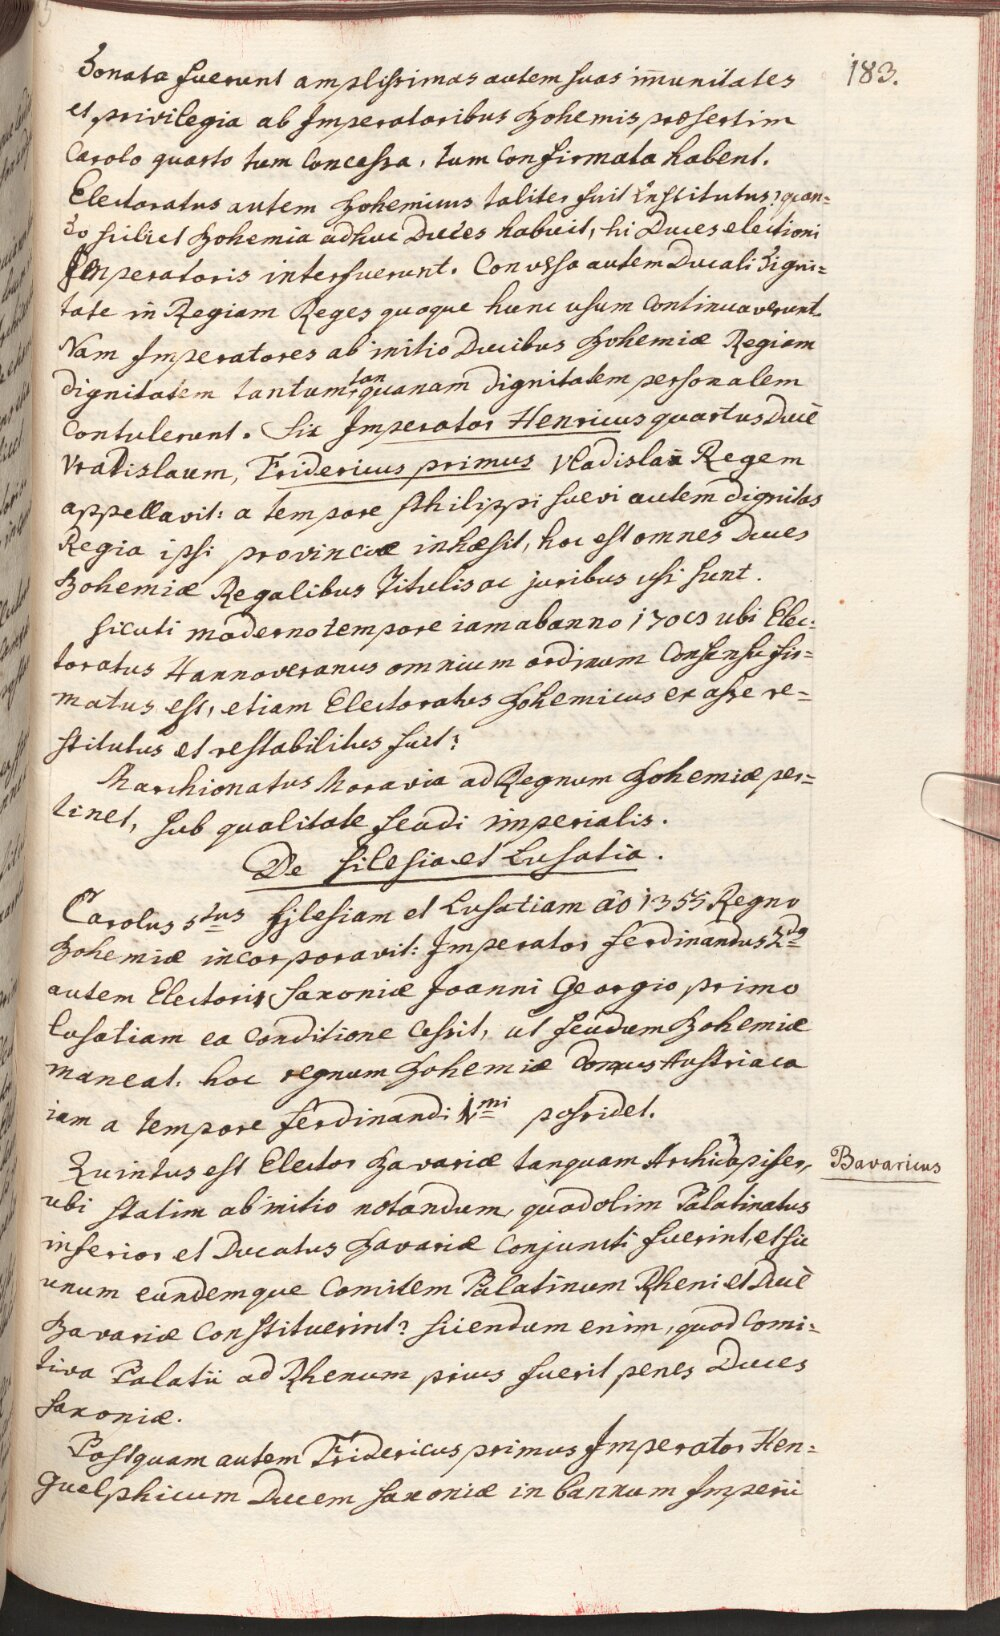 183.
Donata fuerunt amplissimas autem suas im̄unitates
et privilegia ab Imperatoribus Bohemis præsertim
Carolo quarto tum Concessa, tum Confirmata habent.
Electoratus autem Bohemicus taliter fuit Institutus; quan=
do scilicet Bohemia adhuc Duces habuit, hi Duces electioni
Imperatoris interfuerunt. Conversa autem Ducali Digni=
tate in Regiam Reges quoque hunc usum Continuaverunt.
Nam Imperatores ab initio Ducibus Bohemiæ Regiam
Dignitatem tantum tanquam Dignitatem personalem
Contulerunt. Sic Imperator Henricus quartus Ducē
Vratislaum, Fridericus primus Vladislaū Regem
appellavit: a tempore Philippi Suevi autem Dignitas
Regia ipsi provinciæ inhæsit, hoc est omnes Duces
Bohemiæ Regalibus Titulis ac juribus usi sunt.
Sicuti moderno tempore iam ab anno 1708 ubi Elec:
toratus Hannoveranus omnium ordinum Consensu fir=
matus est, etiam Electoratus Bohemicus ex asse re=
stitutus et restabilitus fuit;
Marchionatus Moravia ad Regnum Bohemiæ per=
tinet, sub qualitate feudi imperialis.
De Silesia et Lusatia.
Carolus 5tus Sylesiam et Lusatiam aō 1355 Regno
Bohemiæ incorporavit: Imperator Ferdinandus 2dg
autem Electori Saxoniæ Joanni Georgio primo
Lusatiam ea Conditione Cessit, ut feudum Bohemiæ
maneat. hoc regnum Bohemiæ Domus Austriaca
iam a tempore Ferdinandi 1mi possidet.
Quintus est Elector Bavariæ tanquam Archidapifer,
Bavaricus
ubi statim ab initio notandum, quod olim Palatinatus
inferior et Ducatus Bavariæ Conjuncti fuerint, et sic
unum eundemque Comitem Palatinum Rheni et Ducē
Bavariæ Constituerint? Sciendum enim, quod Comi=
tiva Palatii ad Rhenum prius fuerit penes Duces
Saxoniæ.
Postquam autem Fridericus primus Imperator Hen=
Guelphicum Ducem Saxoniæ in Bannum Imperii